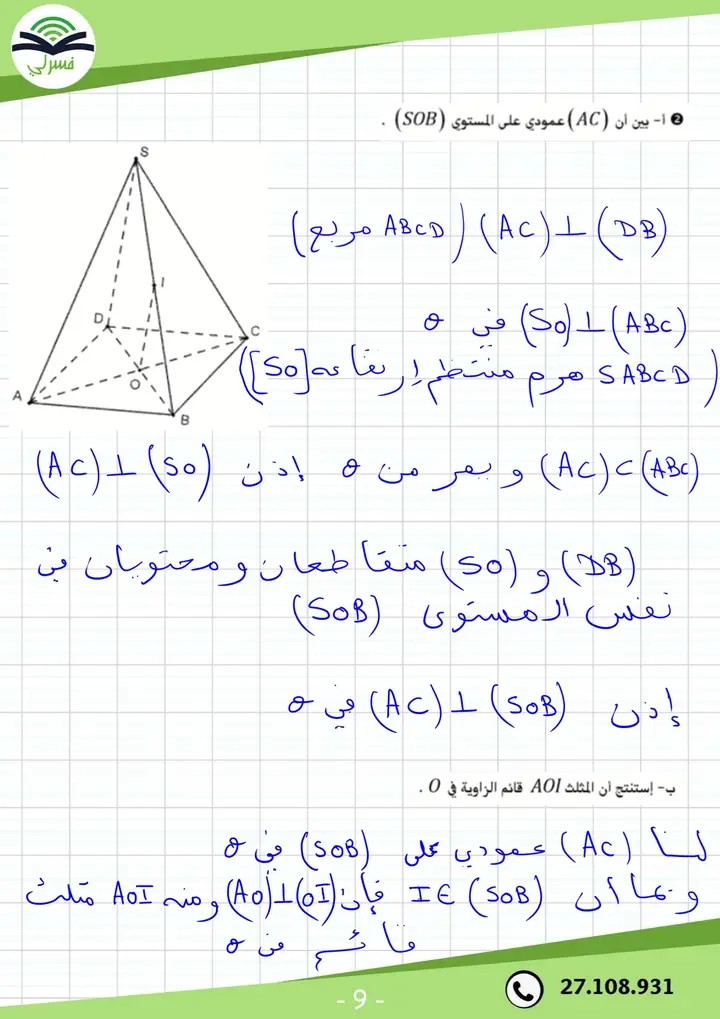 فسرلي
❷ أ- بين أن (AC) عمودي على المستوي (SOB) .
S
I
D
C
O
A
B
(DB) ⊥ (AC) (ABCD مربع)
(SO) ⊥ (ABC) في O
(SABCD هرم منتظم إرتفاعه [SO])
(AC) ⊂ (ABC) و يمر من O إذن (SO) ⊥ (AC)
(DB) و (SO) متقاطعان و محتويان في
نفس المستوى (SOB)
إذن (SOB) ⊥ (AC) في O
ب- إستنتج أن المثلث AOI قائم الزاوية في O .
لنا (AC) عمودي على (SOB) في O
و بما أن I ∈ (SOB) فإن (OI) ⊥ (AO) و منه AOI مثلث
قائم في O
27.108.931
- 9 -